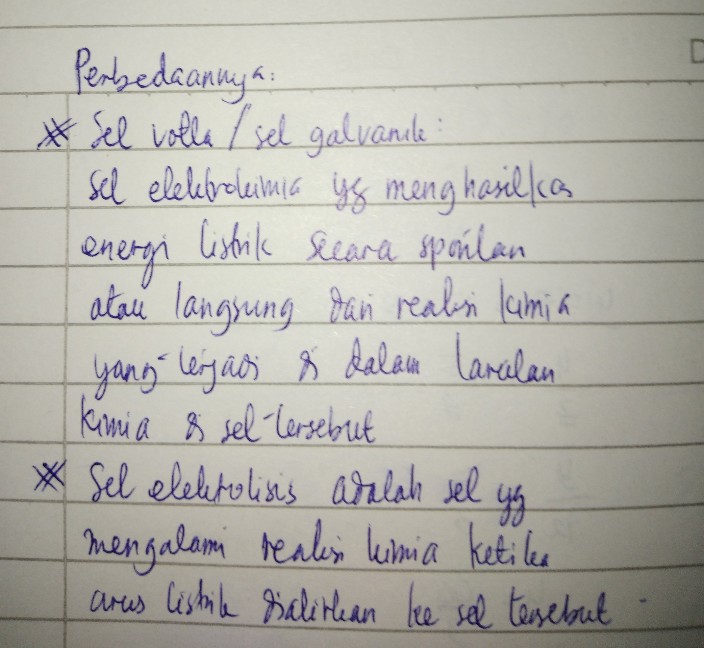 Perbedaannya:
* Sel volta / sel galvanik:
Sel elektrokimia yg menghasilkan
energi listrik secara spontan
atau langsung dari reaksi kimia
yang terjadi di dalam larutan
kimia di sel tersebut
* Sel elektrolisis adalah sel yg
mengalami reaksi kimia ketika
arus listrik dialirkan ke sel tersebut